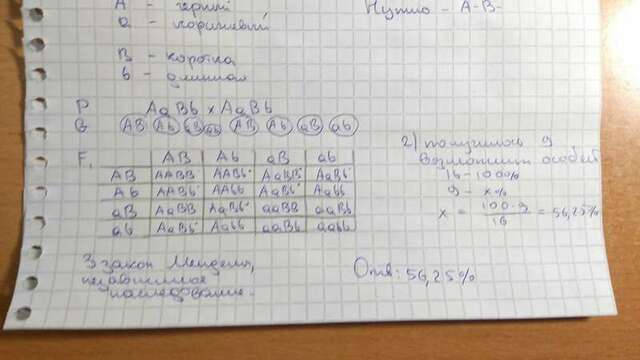 A - черный
Нужно - A-B-
a - коричневый
B - коротка
b - длинная
P AaBb x AaBb
G AB Ab aB ab AB Ab aB ab
2) получилось 9
возможных особей
F₁ AB Ab aB ab
16 - 100%
AB AABB AABb AaBB AaBb
9 - x%
Ab AABb AAbb AaBb Aabb
x = 100·9 / 16 = 56,25%
aB AaBB AaBb aaBB aaBb
ab AaBb Aabb aaBb aabb
3 закон Менделя,
независимое
наследование.
Отв: 56,25%